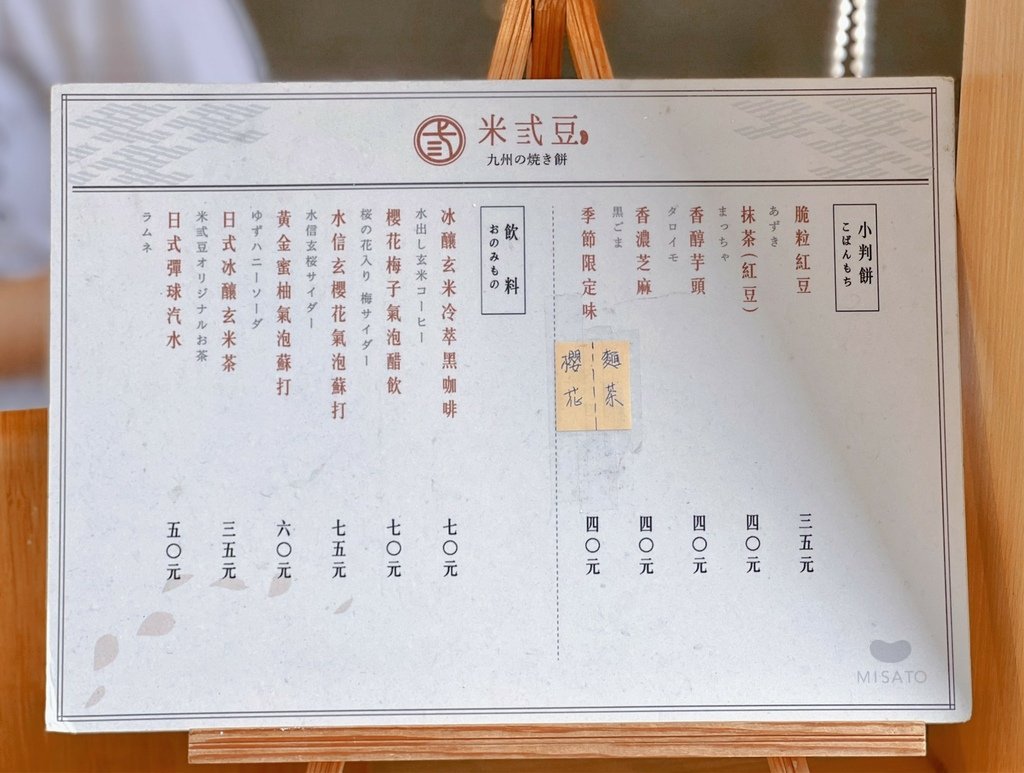 弐
米弎豆
九州の焼き餅
小判餅
こばんもち
脆粒紅豆
三五元
あずき
抹茶(紅豆)
四〇元
まっちゃ
香醇芋頭
四〇元
タロイモ
香濃芝麻
四〇元
黒ごま
季節限定味
四〇元
麵茶
櫻花
飲料
おのみもの
冰釀玄米冷萃黑咖啡
七〇元
水出し玄米コーヒー
櫻花梅子氣泡醋飲
七〇元
桜の花入り 梅サイダー
水信玄櫻花氣泡蘇打
七五元
水信玄桜サイダー
黃金蜜柚氣泡蘇打
六〇元
ゆずハニーソーダ
日式冰釀玄米茶
三五元
米弎豆オリジナルお茶
日式彈球汽水
五〇元
ラムネ
MISATO